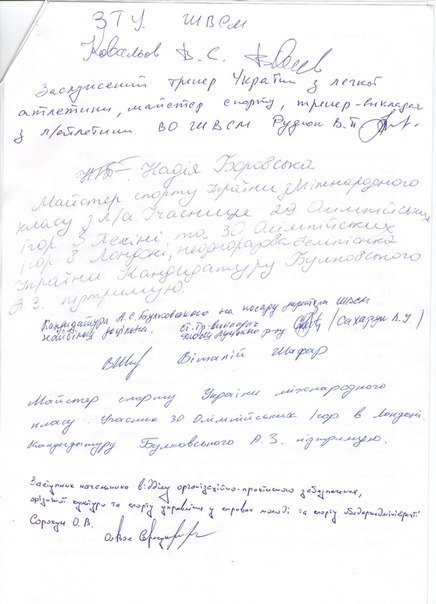 ЗТУ ШВСМ
Ковальов В. С.
Заслужений тренер України з легкої
атлетики, майстер спорту, тренер-викладач
з л/атлетики ВО ШВСМ Рудюк В.П.
Надія Боровська
Майстер спорту України Міжнародного
класу з л/а. Учасниця 29 Олімпійських
ігор в Пекіні та 30 Олімпійських
ігор в Лондоні, неодноразова чемпіонка
України. Кандидатуру Булковського
А.З. підтримую
Кандидатура А.Є. Булковського на посаду директора ШВСМ
найбільш доцільна. Ст. тр-викладач (Сахарук В.У)
Віталій Шафар
Майстер спорту України міжнародного
класу. Учасник 30 Олімпійських Ігор в Лондоні.
Кандидатуру Булковського А.З. підтримую.
Заступник начальника відділу організаційно-практичного забезпечення,
фізичної культури та спорту управління у справах молоді та спорту облдержадміністрації
Сорокун О.В.